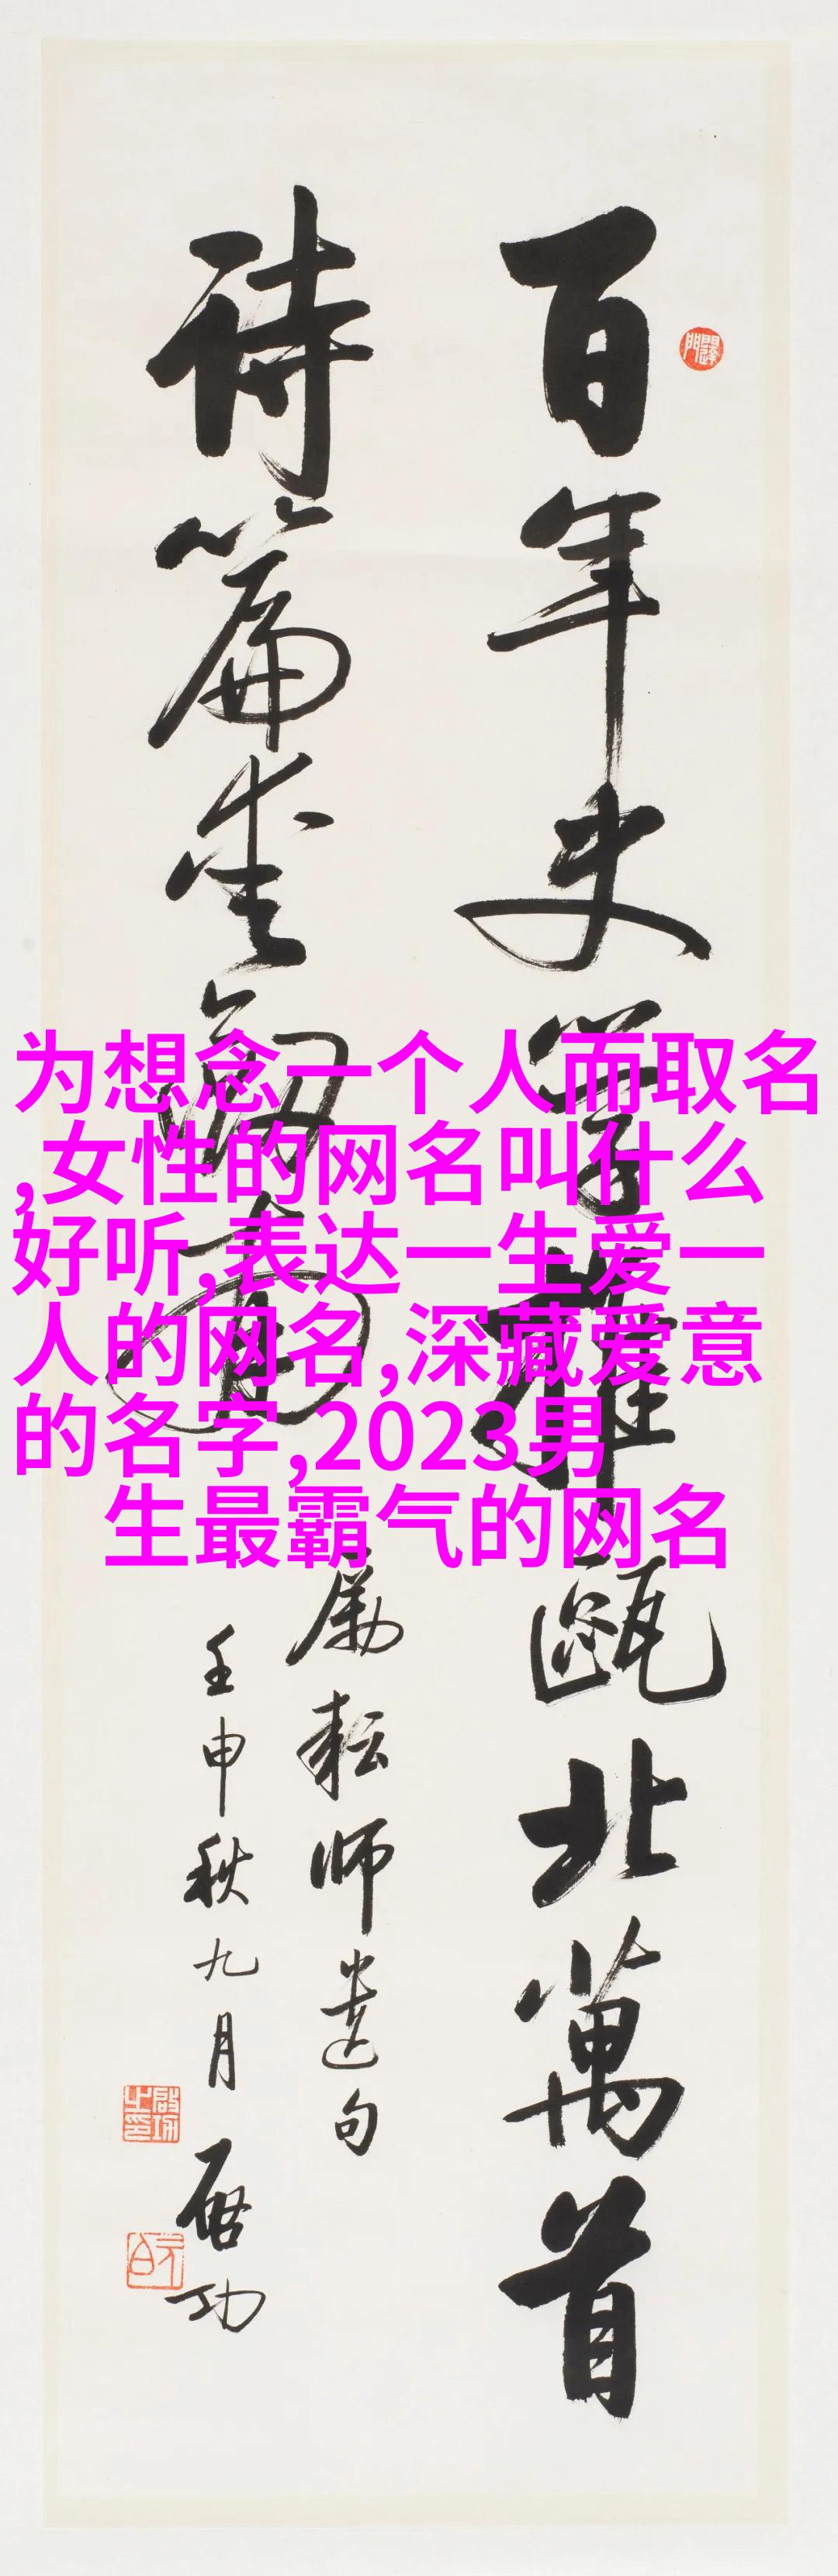 百年史学推瓯北萬首
诗篇爱剑南
励耘师遗句
壬申秋九月
启功
啟功之印
元白
为想念一个人而取名
,女性的网名叫什么
好听,表达一生爱一
人的网名,深藏爱意
的名字,2023男
生最霸气的网名